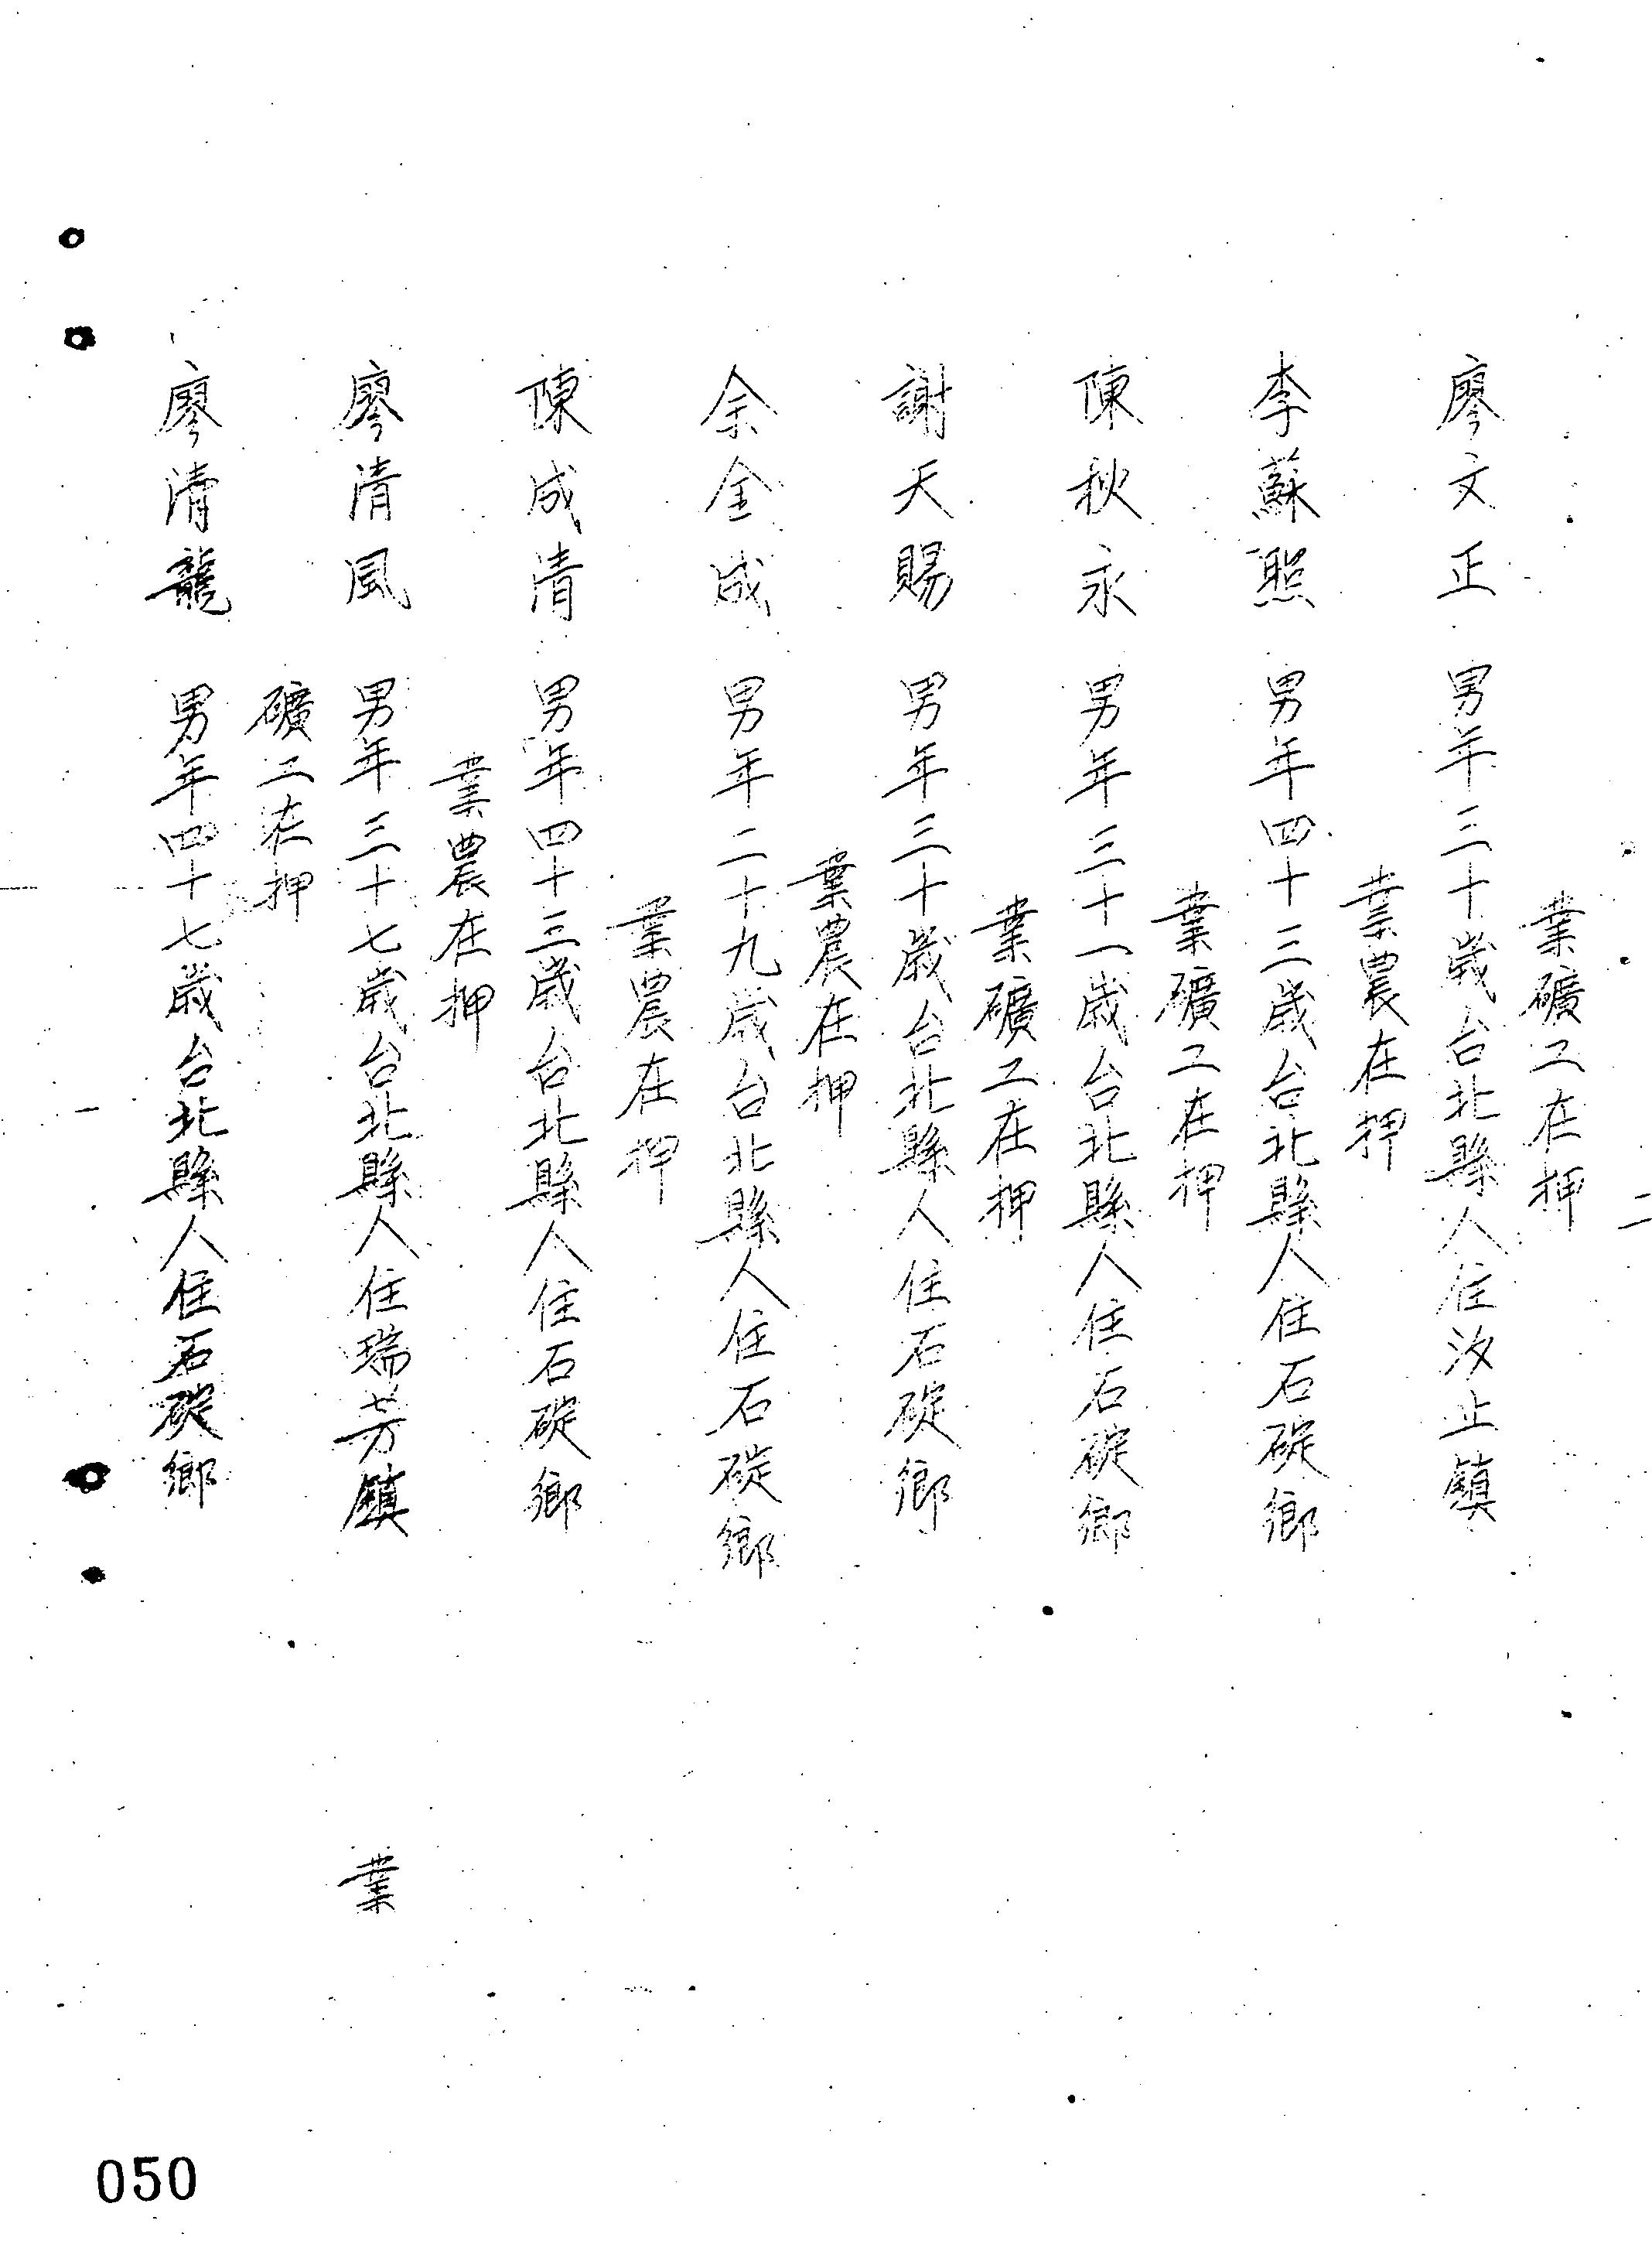 業礦工在押
廖文正 男年三十歲台北縣人住汐止鎮
業農在押
李蘇熙 男年四十三歲台北縣人住石碇鄉
業礦工在押
陳秋永 男年三十一歲台北縣人住石碇鄉
業礦工在押
謝天賜 男年三十歲台北縣人住石碇鄉
業農在押
余金成 男年二十九歲台北縣人住石碇鄉
業農在押
陳成清 男年四十三歲台北縣人住石碇鄉
業農在押
廖清風 男年三十七歲台北縣人住瑞芳鎮 業
礦工在押
廖清龍 男年四十七歲台北縣人住石碇鄉
二
050